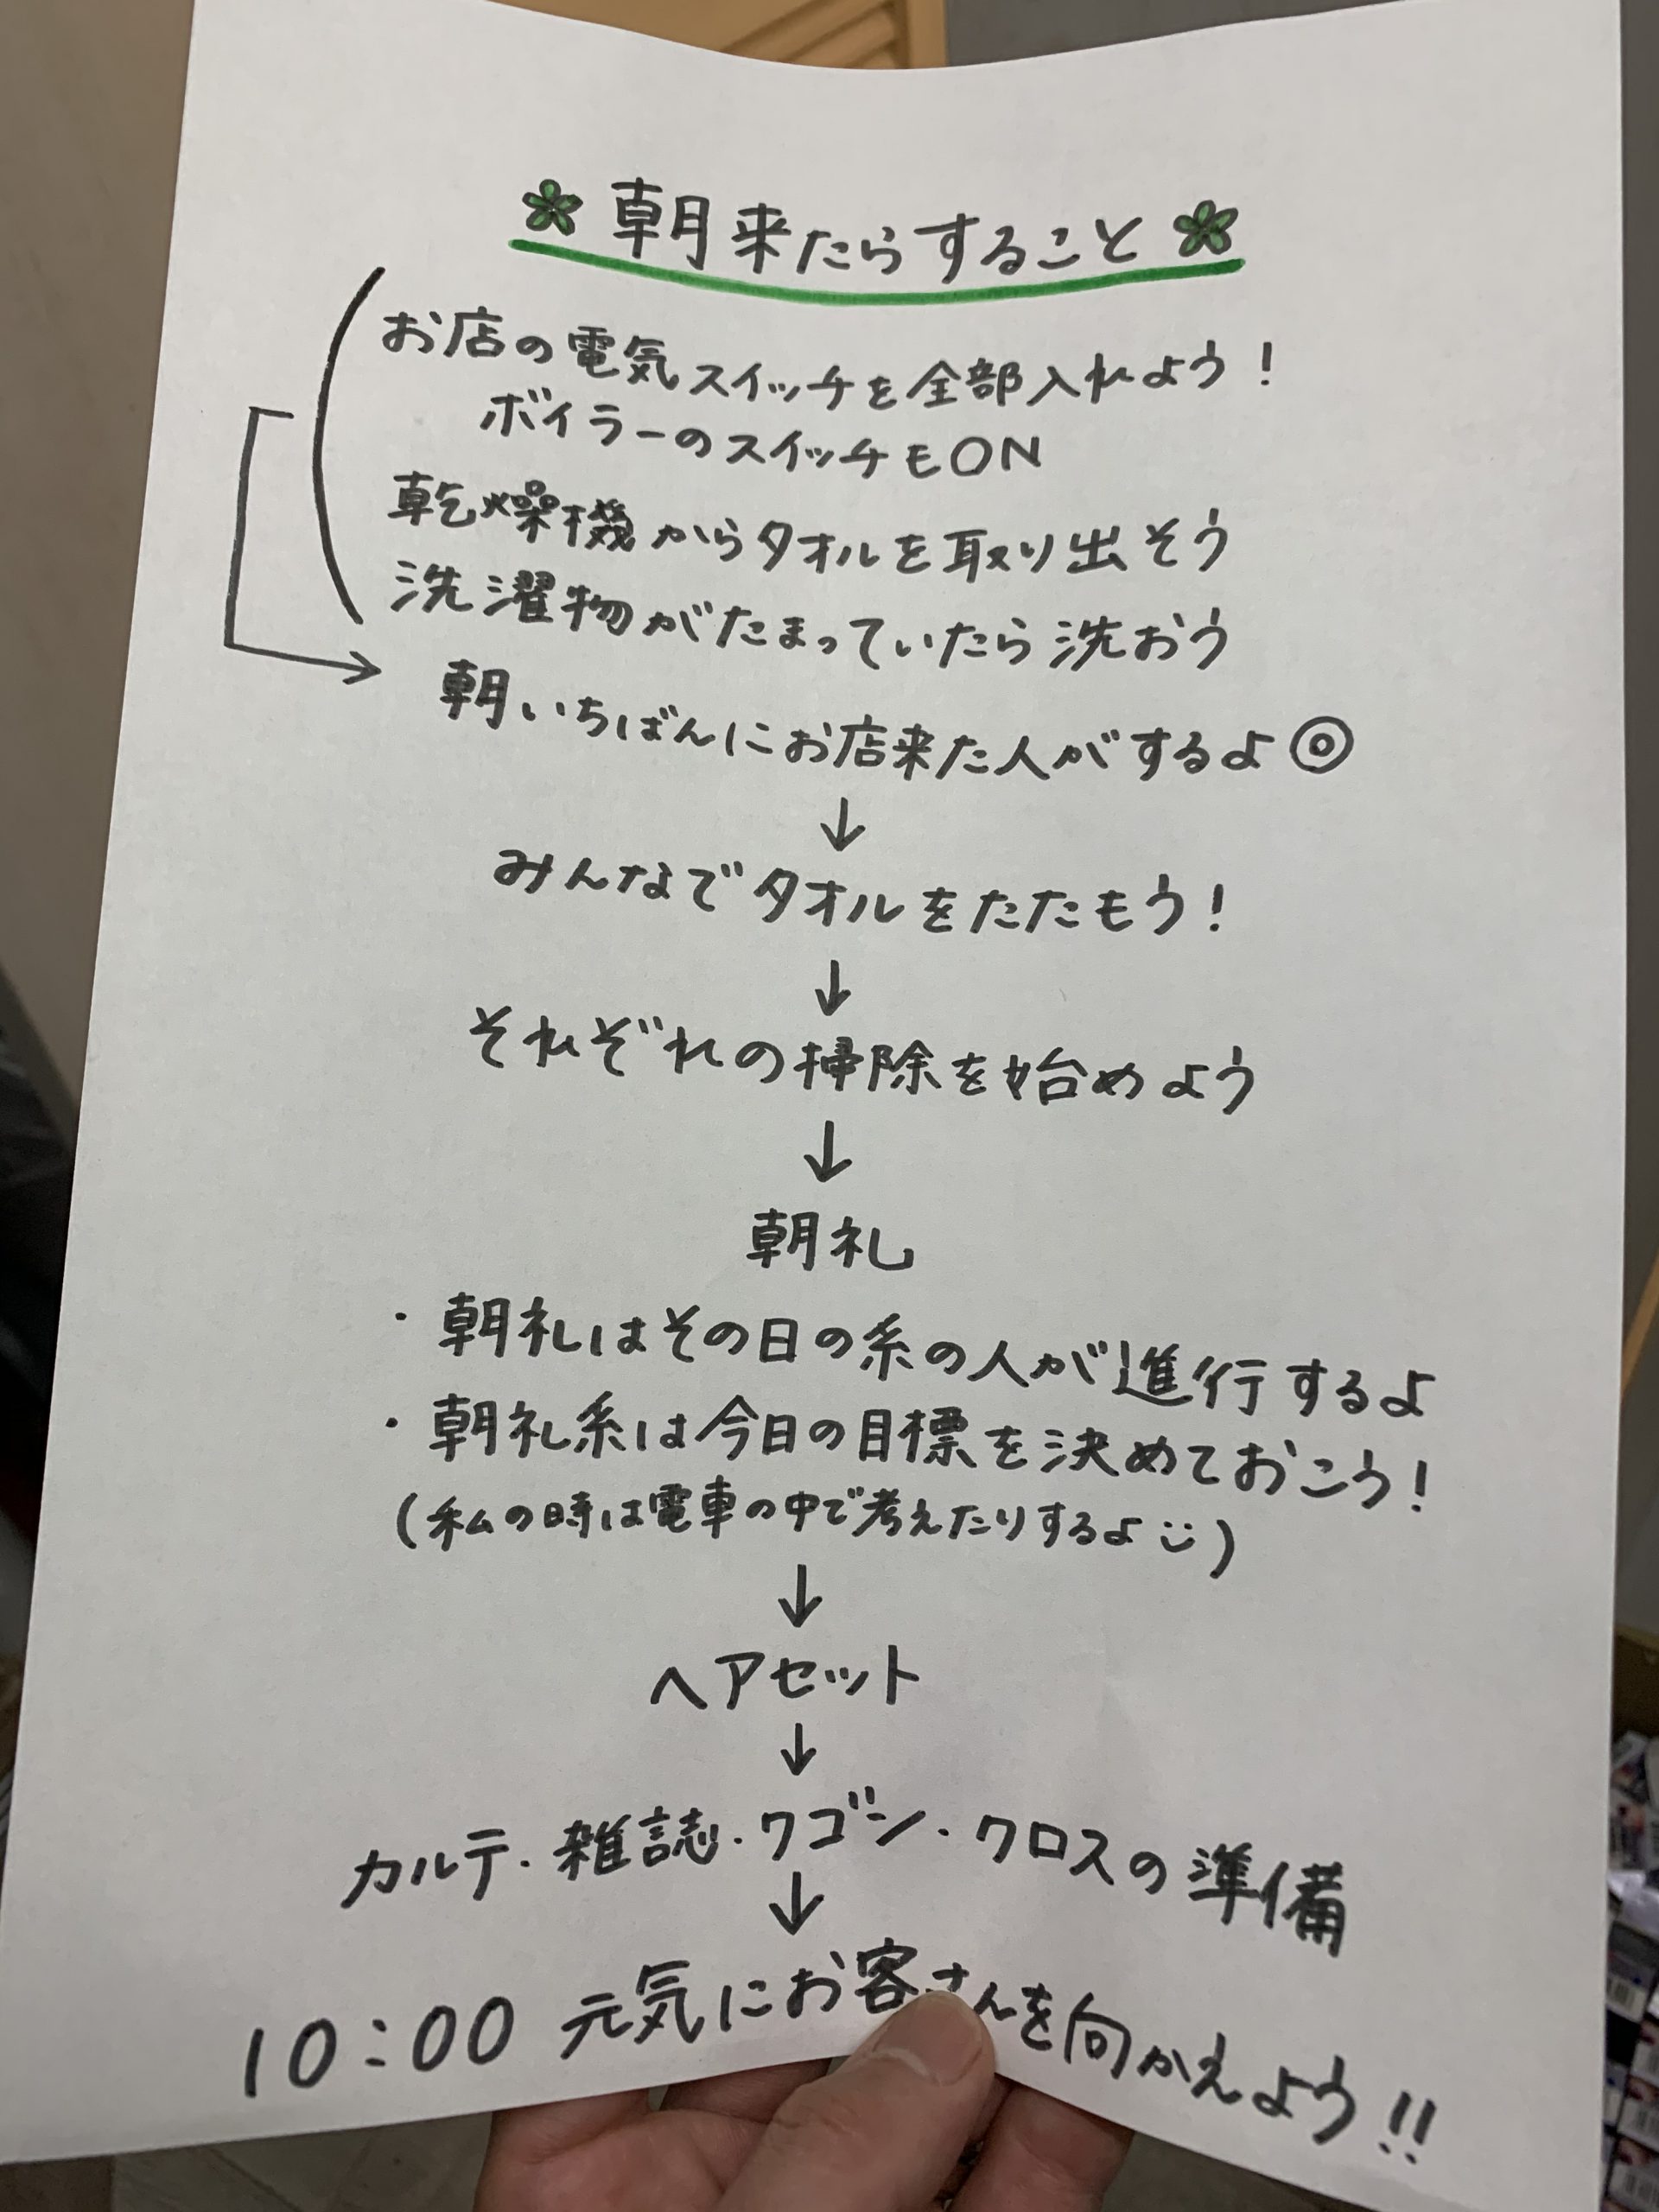 朝来たらすること
お店の電気スイッチを全部入れよう！
ボイラーのスイッチもON
乾燥機からタオルを取り出そう
洗濯物がたまっていたら洗おう
→ 朝いちばんにお店来た人がするよ◎
↓
みんなでタオルをたたもう！
↓
それぞれの掃除を始めよう
↓
朝礼
・朝礼はその日の糸の人が進行するよ
・朝礼糸は今日の目標を決めておこう！
(私の時は電車の中で考えたりするよ¨̮)
↓
ヘアセット
↓
カルテ・雑誌・ワゴン・クロスの準備
↓
10:00 元気にお客さんを向かえよう!!